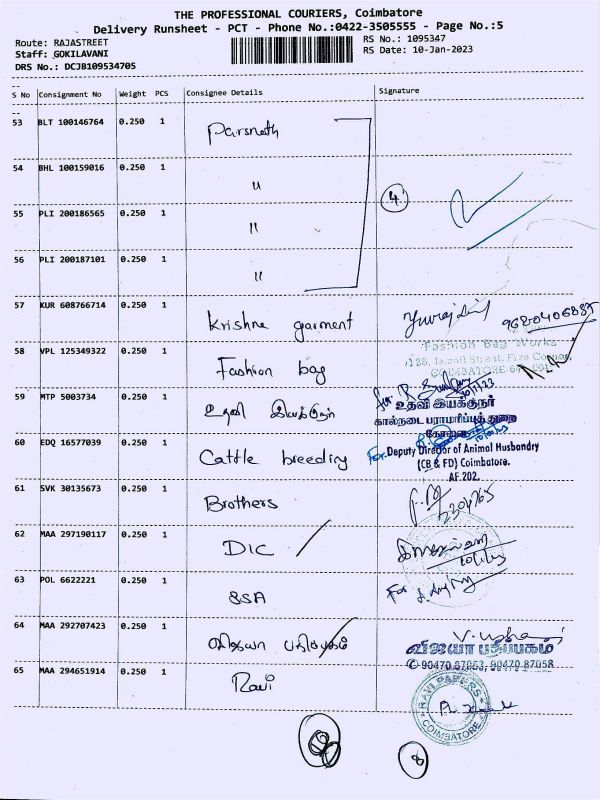 THE PROFESSIONAL COURIERS, Coimbatore
Delivery Runsheet - PCT - Phone No.:0422-3505555 - Page No.:5
Route: RAJASTREET
RS No.: 1095347
Staff: GOKILAVANI
RS Date: 10-Jan-2023
DRS No.: DCJB109534705
S No Consignment No Weight PCS Consignee Details Signature
53 BLT 100146764 0.250 1 Parsnath
54 BHL 100159016 0.250 1 〃 4
55 PLI 200186565 0.250 1 〃
56 PLI 200187101 0.250 1 〃
57 KUR 608766714 0.250 1 Krishna garment
58 VPL 125349322 0.250 1 Fashion bag
Fashion Bag Works
59 MTP 5003734 0.250 1 உதவி இயக்குநர்
உதவி இயக்குநர்
கால்நடை பராமரிப்புத் துறை
60 EDQ 16577039 0.250 1 Cattle breeding
For Deputy Director of Animal Husbandry
(CB & FD) Coimbatore.
AF.202.
61 SVK 30135673 0.250 1 Brothers
62 MAA 297190117 0.250 1 DIC
63 POL 6622221 0.250 1 SSA For
64 MAA 292707423 0.250 1 விஜயா பதிப்பகம்
விஜயா பதிப்பகம்
90470 87053, 90470 87058
65 MAA 294651914 0.250 1 Ravi
RAVI PAPERS
COIMBATORE
10 8